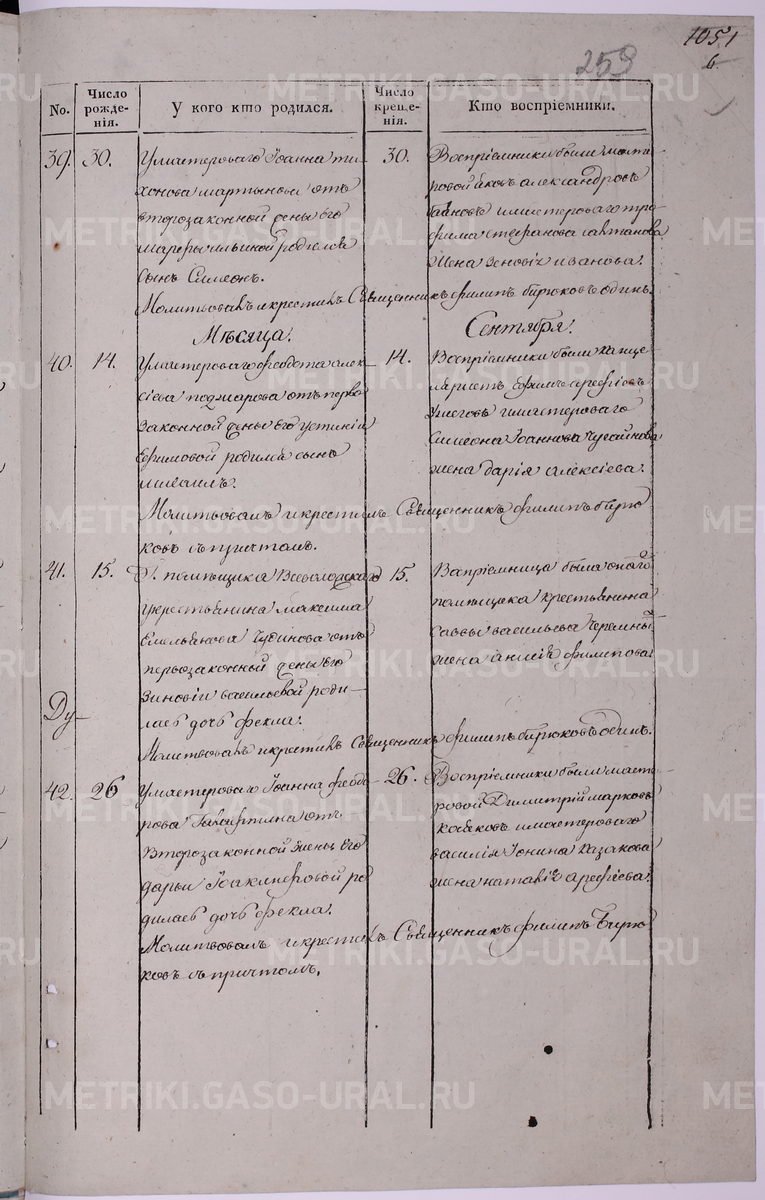 1051
6
259
No.
Число рожде-нія.
У кого кто родился.
Число креще-нія.
Кто воспріемники.
39. 30.
Умастероваго Іоанна ти
хонова мартынова отъ
второзаконной жены его
марфы ильиной родился
сынъ Симеонъ.
30.
Воспріемники были масте
ровой яковъ александровъ
имастероваго тро
фима стефанова
жена зеновія иванова.
Молитвовалъ икрестилъ Священникъ филипъ бирюковъ одинъ.
Мѣсяца. Сентября.
40. 14.
Умастероваго феодота алек
сіева отъ перво
законной жены его устиніи
Ефимовой родился сынъ
михаилъ.
14.
Воспріемники были канце
ляристъ Ефимъ
имастероваго
Симеона Іоаннова
жена дарія алексіева.
Молитвовалъ икрестилъ Священникъ филипъ бирю
ковъ съпричтомъ.
41. 15.
Г. помѣщика Всеволожскаго
укрестьянина максима
Емельянова Чудинова отъ
первозаконной жены его
Зиновіи васильевой роди
лась дочь фекла.
Ду
15.
Вапріемница была онаго
помѣщика крестьянина
саввы васильева
жена филипова.
Молитвовалъ икрестилъ Священникъ филипъ бирюковъ одинъ.
42. 26
Умастероваго Іоанна феодо
рова отъ
второзаконной жены Его
дарьи Іоакимфовой ро
дилась дочь фекла.
26.
Воспріемники были масте
ровой Димитрій марковъ
имастероваго
василія Іонина казакова
жена наталія арефіева.
Молитвовалъ икрестилъ Священникъ филипъ Бирю
ковъ съпричтомъ.
METRIKI.GASO-URAL.RU